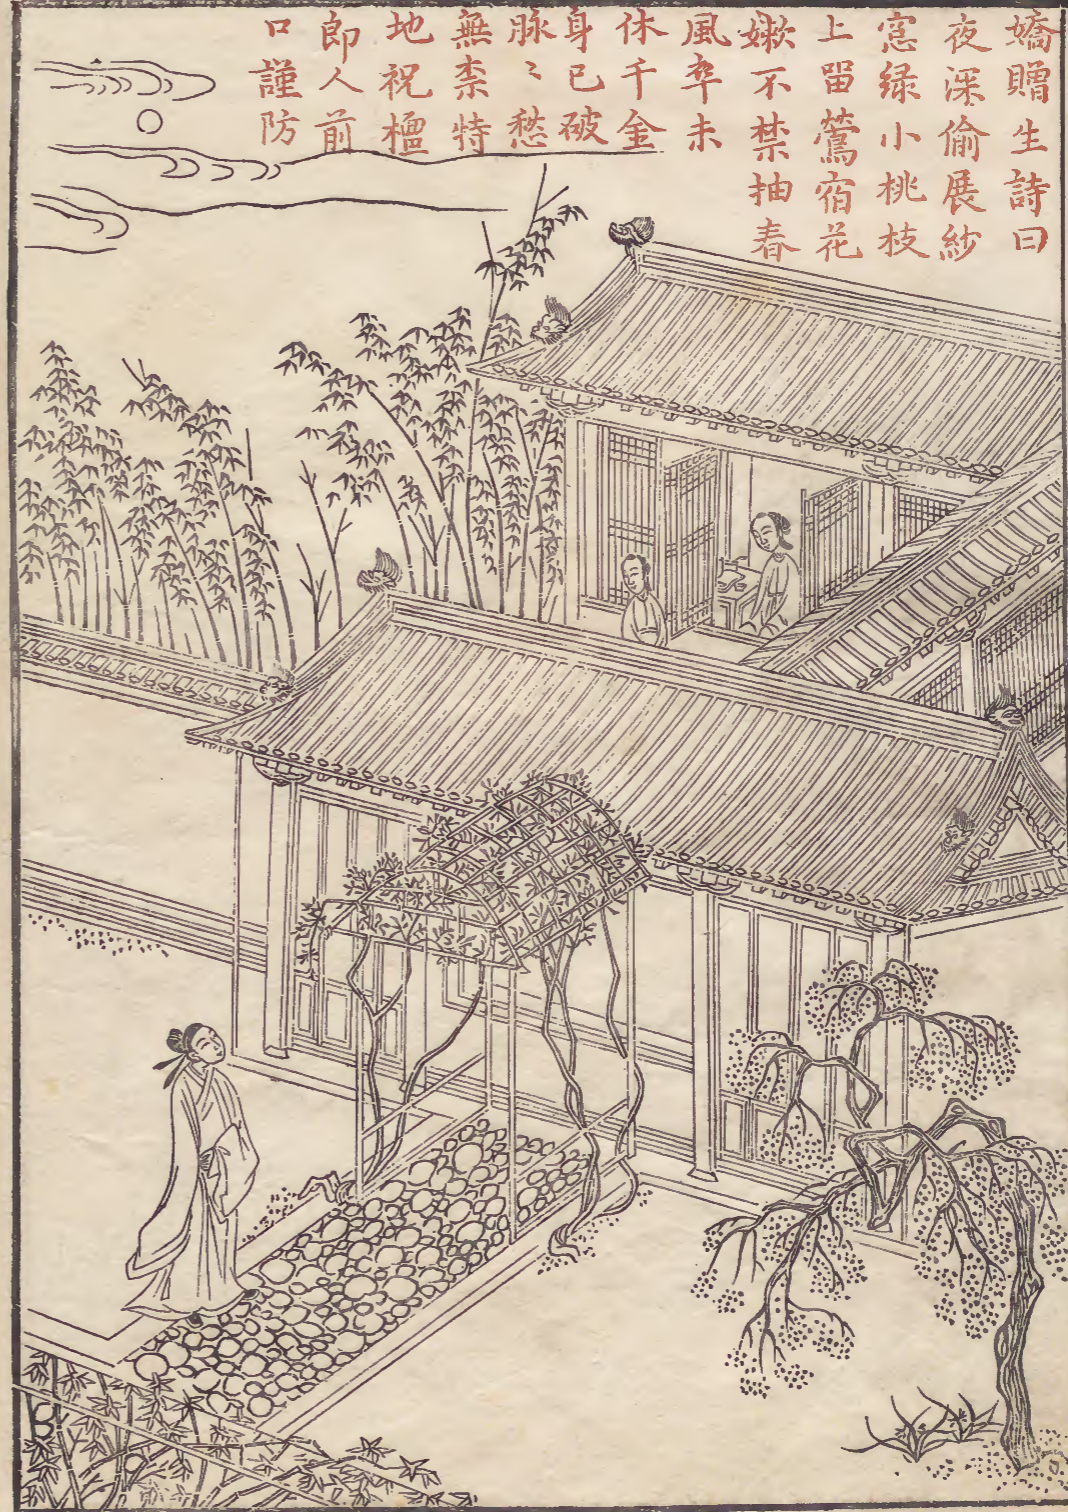 嬌贈生詩曰
夜深偷展紗
窓緑小桃枝
上畱鶯宿花
嫩不禁抽春
風卒未
休千金
身已破
脉〻愁
無柰特
地祝檀
郎人前
口謹防